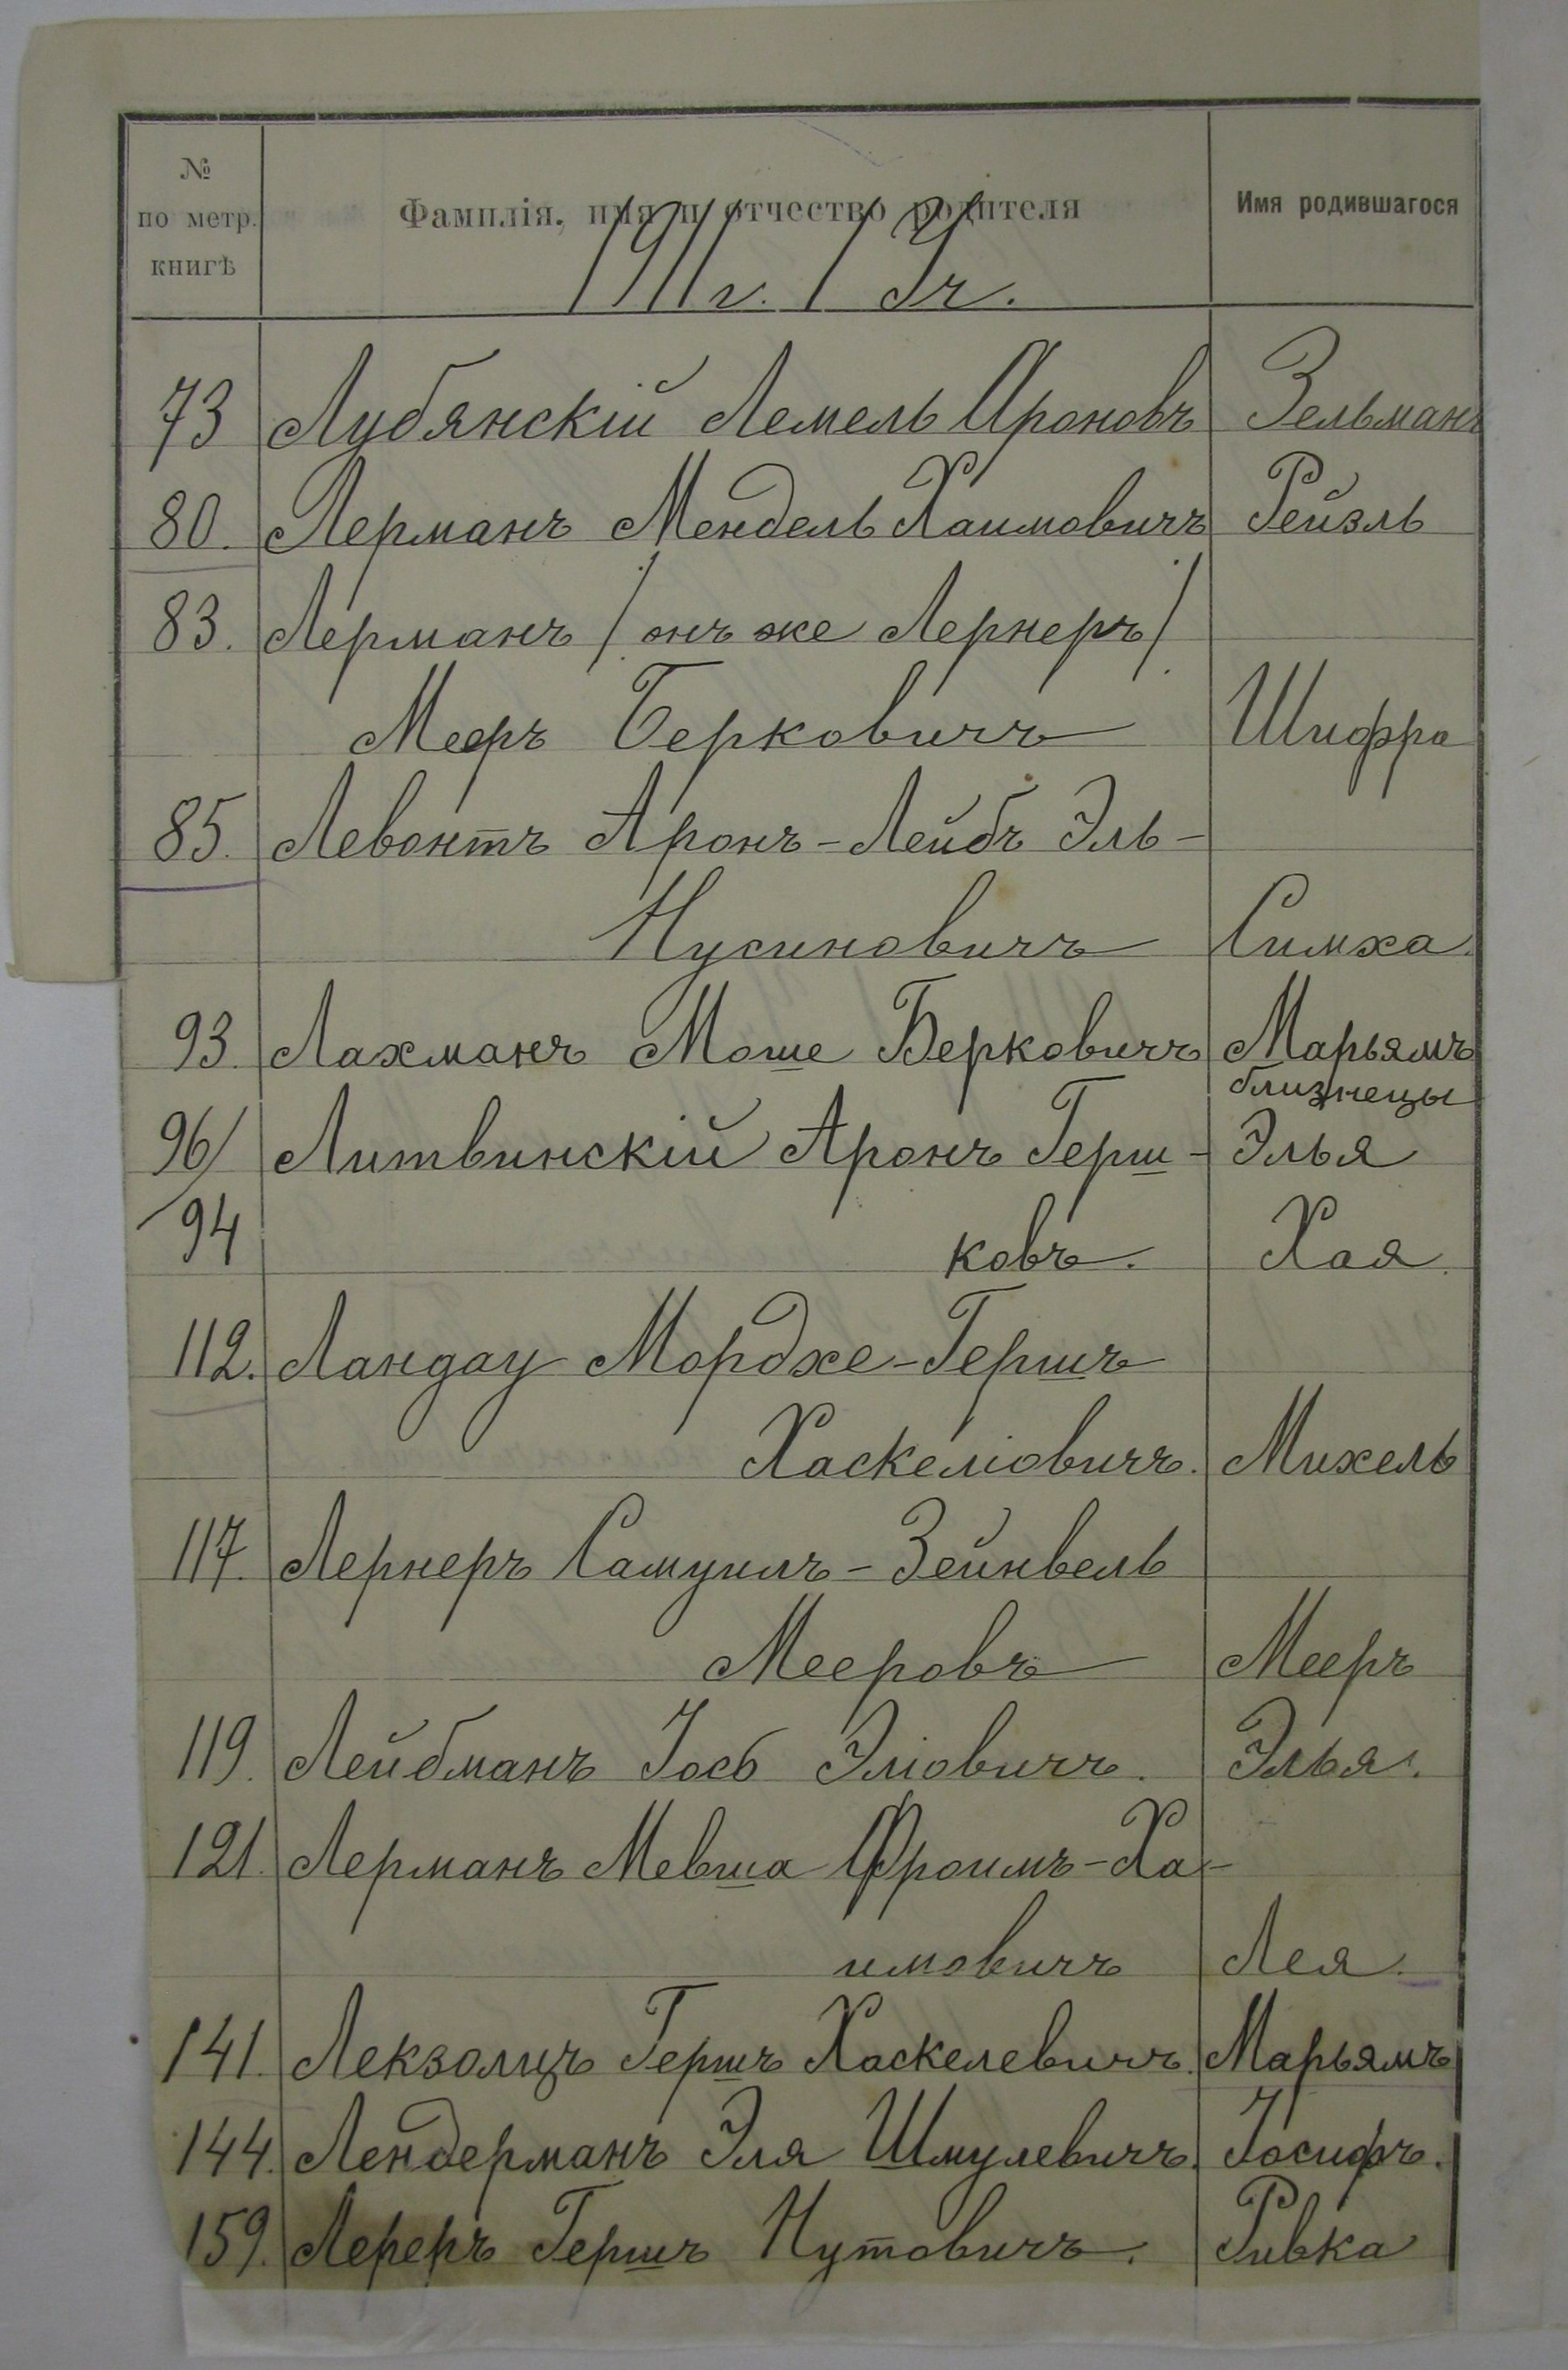 №
по метр.
книгѣ
Фамилія, имя и отчество родителя
Имя родившагося
1911 г. / Iч.
73 Лубянскій Лемель Ароновъ Зельманъ
80. Лерманъ Мендель Хаимовичъ Рейзль
83. Лерманъ / онъ же Лернеръ /
Мееръ Берковичъ Шифра
85. Левонтъ Аронъ-Лейбъ Эль-
Нусиновичъ Симха.
93. Лахманъ Моше Берковичъ Марьямъ
близнецы
96/ Литвинскій Аронъ Герш- Элья
94 ковъ. Хая.
112. Ландау Мордхе-Гершъ
Хаскеліовичъ. Михель
117. Лернеръ Самуилъ-Зейнвель
Мееровъ Мееръ
119. Лейбманъ Іось Эліовичъ. Элья.
121. Лерманъ Мевша Фроимъ-Ха-
имовичъ Лея.
141. Лекзолцъ Гершъ Хаскелевичъ. Марьямъ
144. Лендерманъ Эля Шмулевичъ. Іосифъ.
159. Лереръ Гершъ Нутовичъ. Ривка